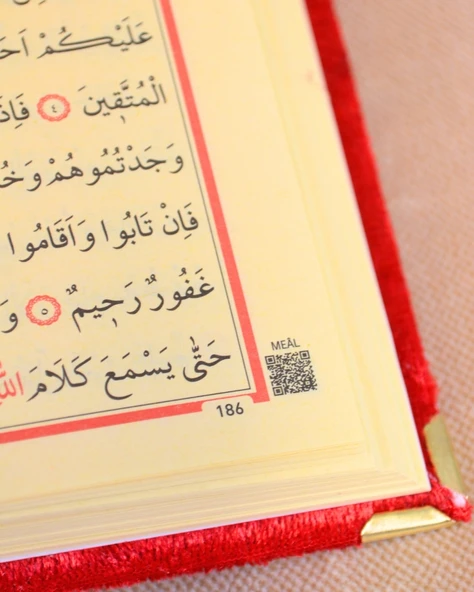 عَلَيْكُمْ
الْمُتَّقِينَ ٤ فَاِذَ
وَجَدْتُمُوهُمْ وَخُ
فَاِنْ تَابُوا وَاَقَامُوا
غَفُورٌ رَحِيمٌ ٥ وَ
حَتّٰى يَسْمَعَ كَلَامَ اللّٰ
MEÂL
186